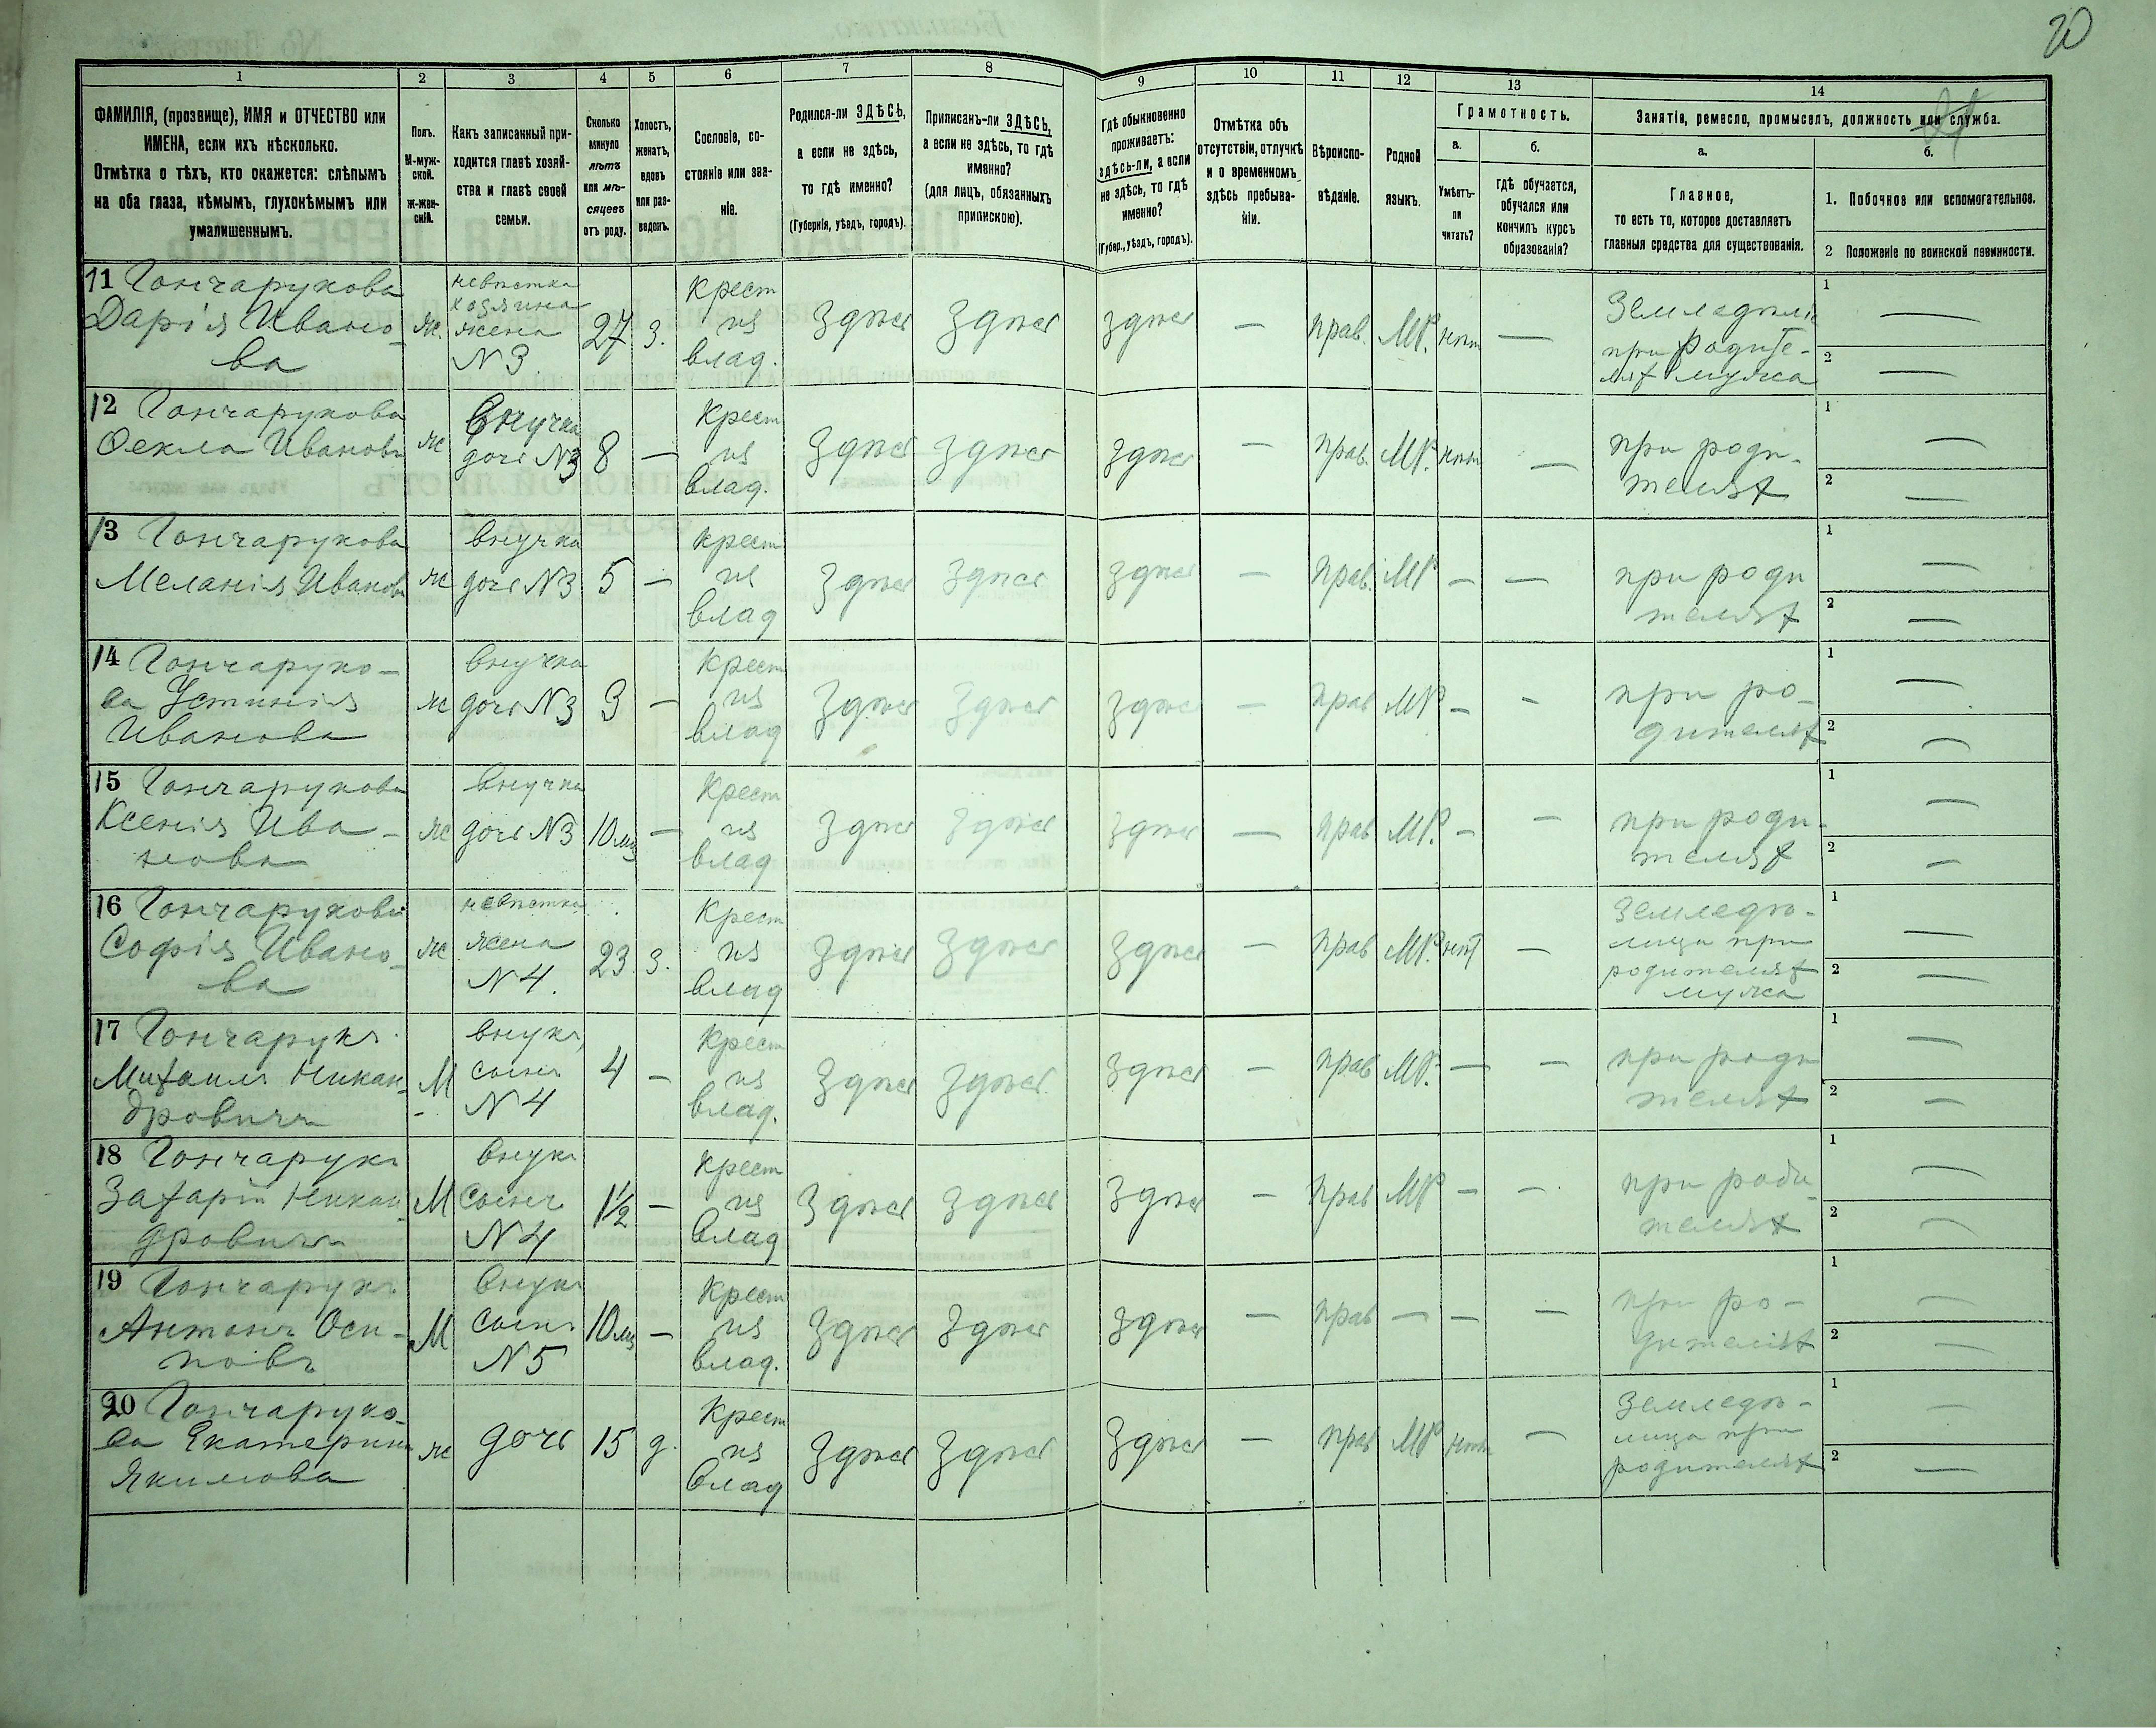 20
1 2 3 4 5 6 7 8 9 10 11 12 13 14
ФАМИЛІЯ, (прозвище), ИМЯ и ОТЧЕСТВО или
ИМЕНА, если ихъ нѣсколько.
Отмѣтка о тѣхъ, кто окажется: слѣпымъ
на оба глаза, нѣмымъ, глухонѣмымъ или
умалишеннымъ.
Полъ.
М-муж-
ской.
ж-жен-
скій.
Какъ записанный при-
ходится главѣ хозяй-
ства и главѣ своей
семьи.
Сколько
минуло
лѣтъ
или мѣ-
сяцевъ
отъ роду.
Холостъ,
женатъ,
вдовъ
или раз-
веденъ.
Сословіе, со-
стояніе или зва-
ніе.
Родился-ли ЗДѢСЬ,
а если не здѣсь,
то гдѣ именно?
(Губернія, уѣздъ, городъ).
Приписанъ-ли ЗДѢСЬ,
а если не здѣсь, то гдѣ
именно?
(для лицъ, обязанныхъ
припискою).
Гдѣ обыкновенно
проживаетъ:
здѣсь-ли, а если
не здѣсь, то гдѣ
именно?
(Губер., уѣздъ, городъ).
Отмѣтка объ
отсутствіи, отлучкѣ
и о временномъ
здѣсь пребыва-
ніи.
Вѣроиспо-
вѣданіе.
Родной
языкъ.
Грамотность.
а.
Умѣетъ-
ли
читать?
б.
гдѣ обучается,
обучался или
кончилъ курсъ
образованія?
Занятіе, ремесло, промыселъ, должность или служба.
а.
Главное,
то есть то, которое доставляетъ
главныя средства для существованія.
б.
1. Побочное или вспомогательное.
2 Положеніе по воинской повинности.
11 Гончарукова
Дарія Ивано-
ва
ж.
невѣстка
хозяина
жена
N 3
27
з.
крест
из
влад.
Здѣсь
Здѣсь
здѣсь
—
прав.
МР.
нѣт
—
Земледѣліе
при родите-
лях мужа
1 —
2 —
12 Гончарукова
Фекла Иванова
ж
Внучка
дочь N3
8
—
Крест
из
влад.
Здѣсь
Здѣсь
Здѣсь
—
прав.
МР.
нѣт
—
при роди-
телях
1 —
2 —
13 Гончарукова
Меланія Иванова
ж
внучка
дочь N3
5
—
крест
из
влад
Здѣсь
Здѣсь
Здѣсь
—
прав.
МР
—
—
при роди
телях
1 —
2 —
14 Гончаруко-
ва Устинія
Иванова
ж
внучка
дочь N3
3
—
крест
из
влад
Здѣсь
Здѣсь
Здѣсь
—
прав
МР
—
-
при ро-
дителях
1 —
2 —
15 Гончарукова
Ксенія Ива-
нова
ж
Внучка
дочь N3
10 мц
—
Крест
из
влад
Здѣсь
Здѣсь
Здѣсь
—
прав
МР.
-
-
при роди-
телях
1 —
2 —
16 Гончарукова
Софія Ивано-
ва
ж
невѣстка
жена
N 4.
23
з.
Крест
из
влад
Здѣсь
Здѣсь
Здѣсь
—
прав
МР.
нѣт
—
Земледѣ-
лица при
родителях
мужа
1 —
2 —
17 Гончарукъ
Михаилъ Никан-
дровичъ
М
внукъ,
сынъ
N 4
4
—
Крест
из
влад.
Здѣсь
Здѣсь
Здѣсь
—
прав
МР.
—
—
при роди
телях
1 —
2 —
18 Гончарукъ
Захарій Никан-
дровичъ
М
Внукъ
Сынъ
N 4
1½
—
Крест
из
Влад
Здѣсь
Здѣсь
Здѣсь
—
прав
МР
—
—
при роди-
телях
1 —
2 —
19 Гончарукъ
Антонъ Оси-
повъ
М
Внукъ
Сынъ
N 5
10 мц
—
Крест
из
влад.
Здѣсь
Здѣсь
Здѣсь
—
прав
—
—
—
при ро-
дителях
1 —
2 —
20 Гончаруко-
ва Екатерина
Якимова
ж
дочь
15
д.
Крест
из
Влад
Здѣсь
Здѣсь
Здѣсь
—
прав
МР
нѣт
—
Земледѣ-
лица при
родителях
1 —
2 —